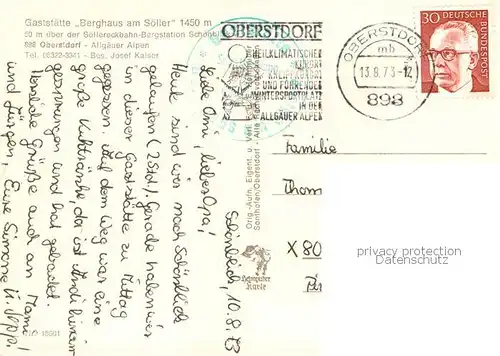 Gaststätte „Berghaus am Söller" 1450 m
50 m über der Söllereckbahn-Bergstation Schönblick
898 Oberstdorf - Allgäuer Alpen
Bes. Josef Kaiser
Schönblick, 10.8.73
Liebe Omi, lieber Opa!
Heute sind wir nach Schönblick
gelaufen (2 Std.). Gerade haben wir
in dieser Gaststätte zu Mittag
gegessen. Auf dem Weg war eine
große Kuhtränke da ist
gesprungen und hat gebadet.
Herzliche Grüße auch an Mami
und Jürgen, Eure Simone u.
OBERSTDORF
HEILKLIMATISCHER
KURORT
KNEIPPKURORT
UND FÜHRENDER
WINTERSPORTPLATZ
IN DEN
ALLGÄUER ALPEN
OBERSTDORF
mb
13.8.73-12
898
30 DEUTSCHE
BUNDESPOST
Orig.-Aufn. Eigent. u. Verl.
Sonthofen/Oberstdorf - Alle
Familie
Thom
X 80
privacy protection
Datenschutz